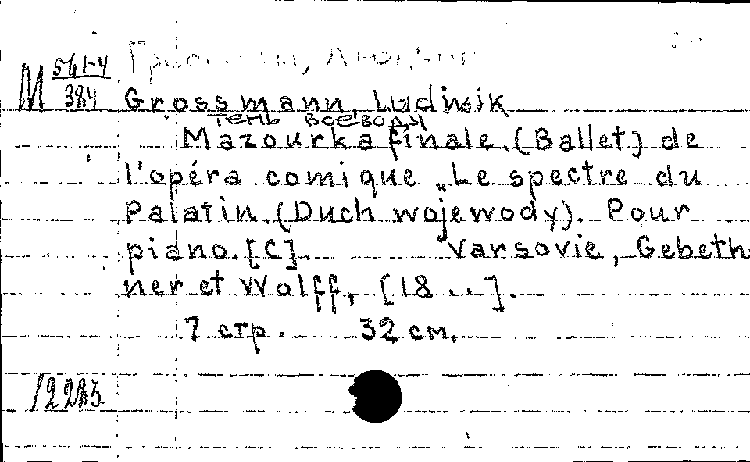 M 561-4
384
Grossmann, Ludwik
тень воеводы
Mazourka finale. (Ballet) de
l'opéra comique „Le spectre du
Palatin. (Duch wojewody). Pour
piano. [C]. Varsovie, Gebeth-
ner et Wolff, [18 ..].
7 стр. 32 см.